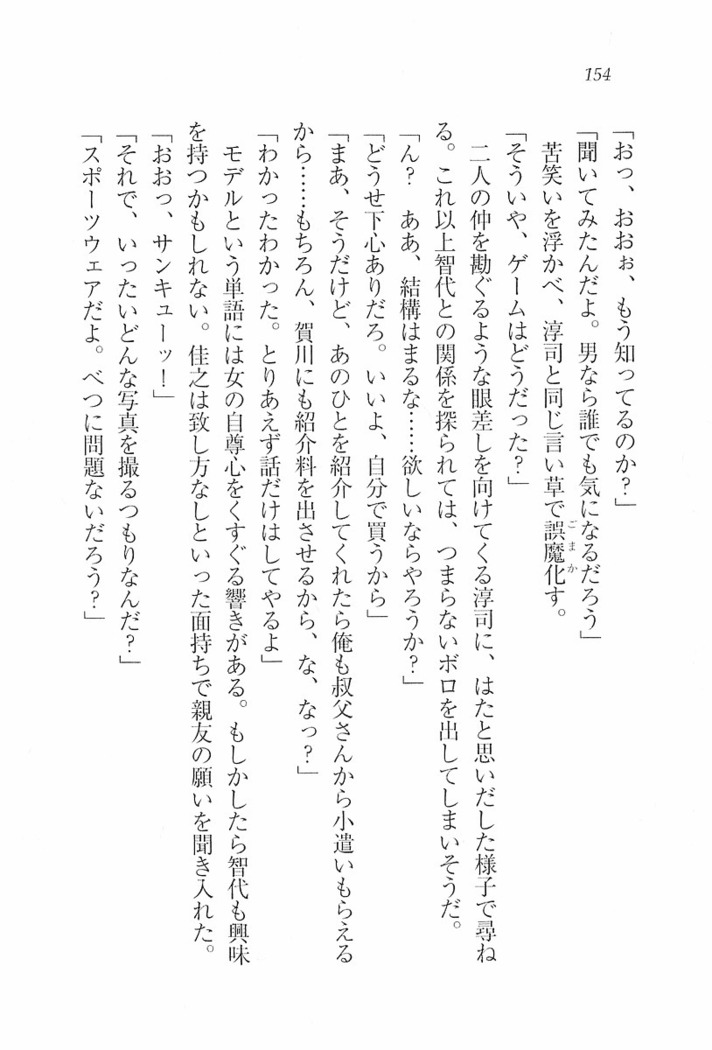 154
「おっ、おおぉ、もう知ってるのか？」
「聞いてみたんだよ。男なら誰でも気になるだろう」
苦笑いを浮かべ、淳司と同じ言い草で誤魔化す。
「そういや、ゲームはどうだった？」
二人の仲を勘ぐるような眼差しを向けてくる淳司に、はたと思いだした様子で尋ね
る。これ以上智代との関係を探られては、つまらないボロを出してしまいそうだ。
「ん？　ああ、結構はまるな……欲しいならやろうか？」
「どうせ下心ありだろ。いいよ、自分で買うから」
「まあ、そうだけど、あのひとを紹介してくれたら俺も叔父さんから小遣いもらえる
から……もちろん、賀川にも紹介料を出させるから、な、なっ？」
「わかったわかった。とりあえず話だけはしてやるよ」
モデルという単語には女の自尊心をくすぐる響きがある。もしかしたら智代も興味
を持つかもしれない。佳之は致し方なしといった面持ちで親友の願いを聞き入れた。
「おおっ、サンキューッ！」
「それで、いったいどんな写真を撮るつもりなんだ？」
「スポーツウェアだよ。べつに問題ないだろう？」
ごまか